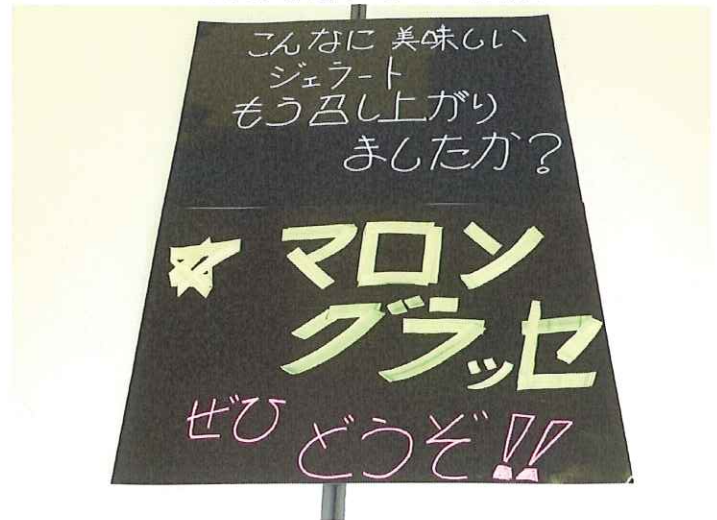 こんなに 美味しい
ジェラート
もう召し上がり
ましたか?
☆ マロン
グラッセ
ぜひ どうぞ!!